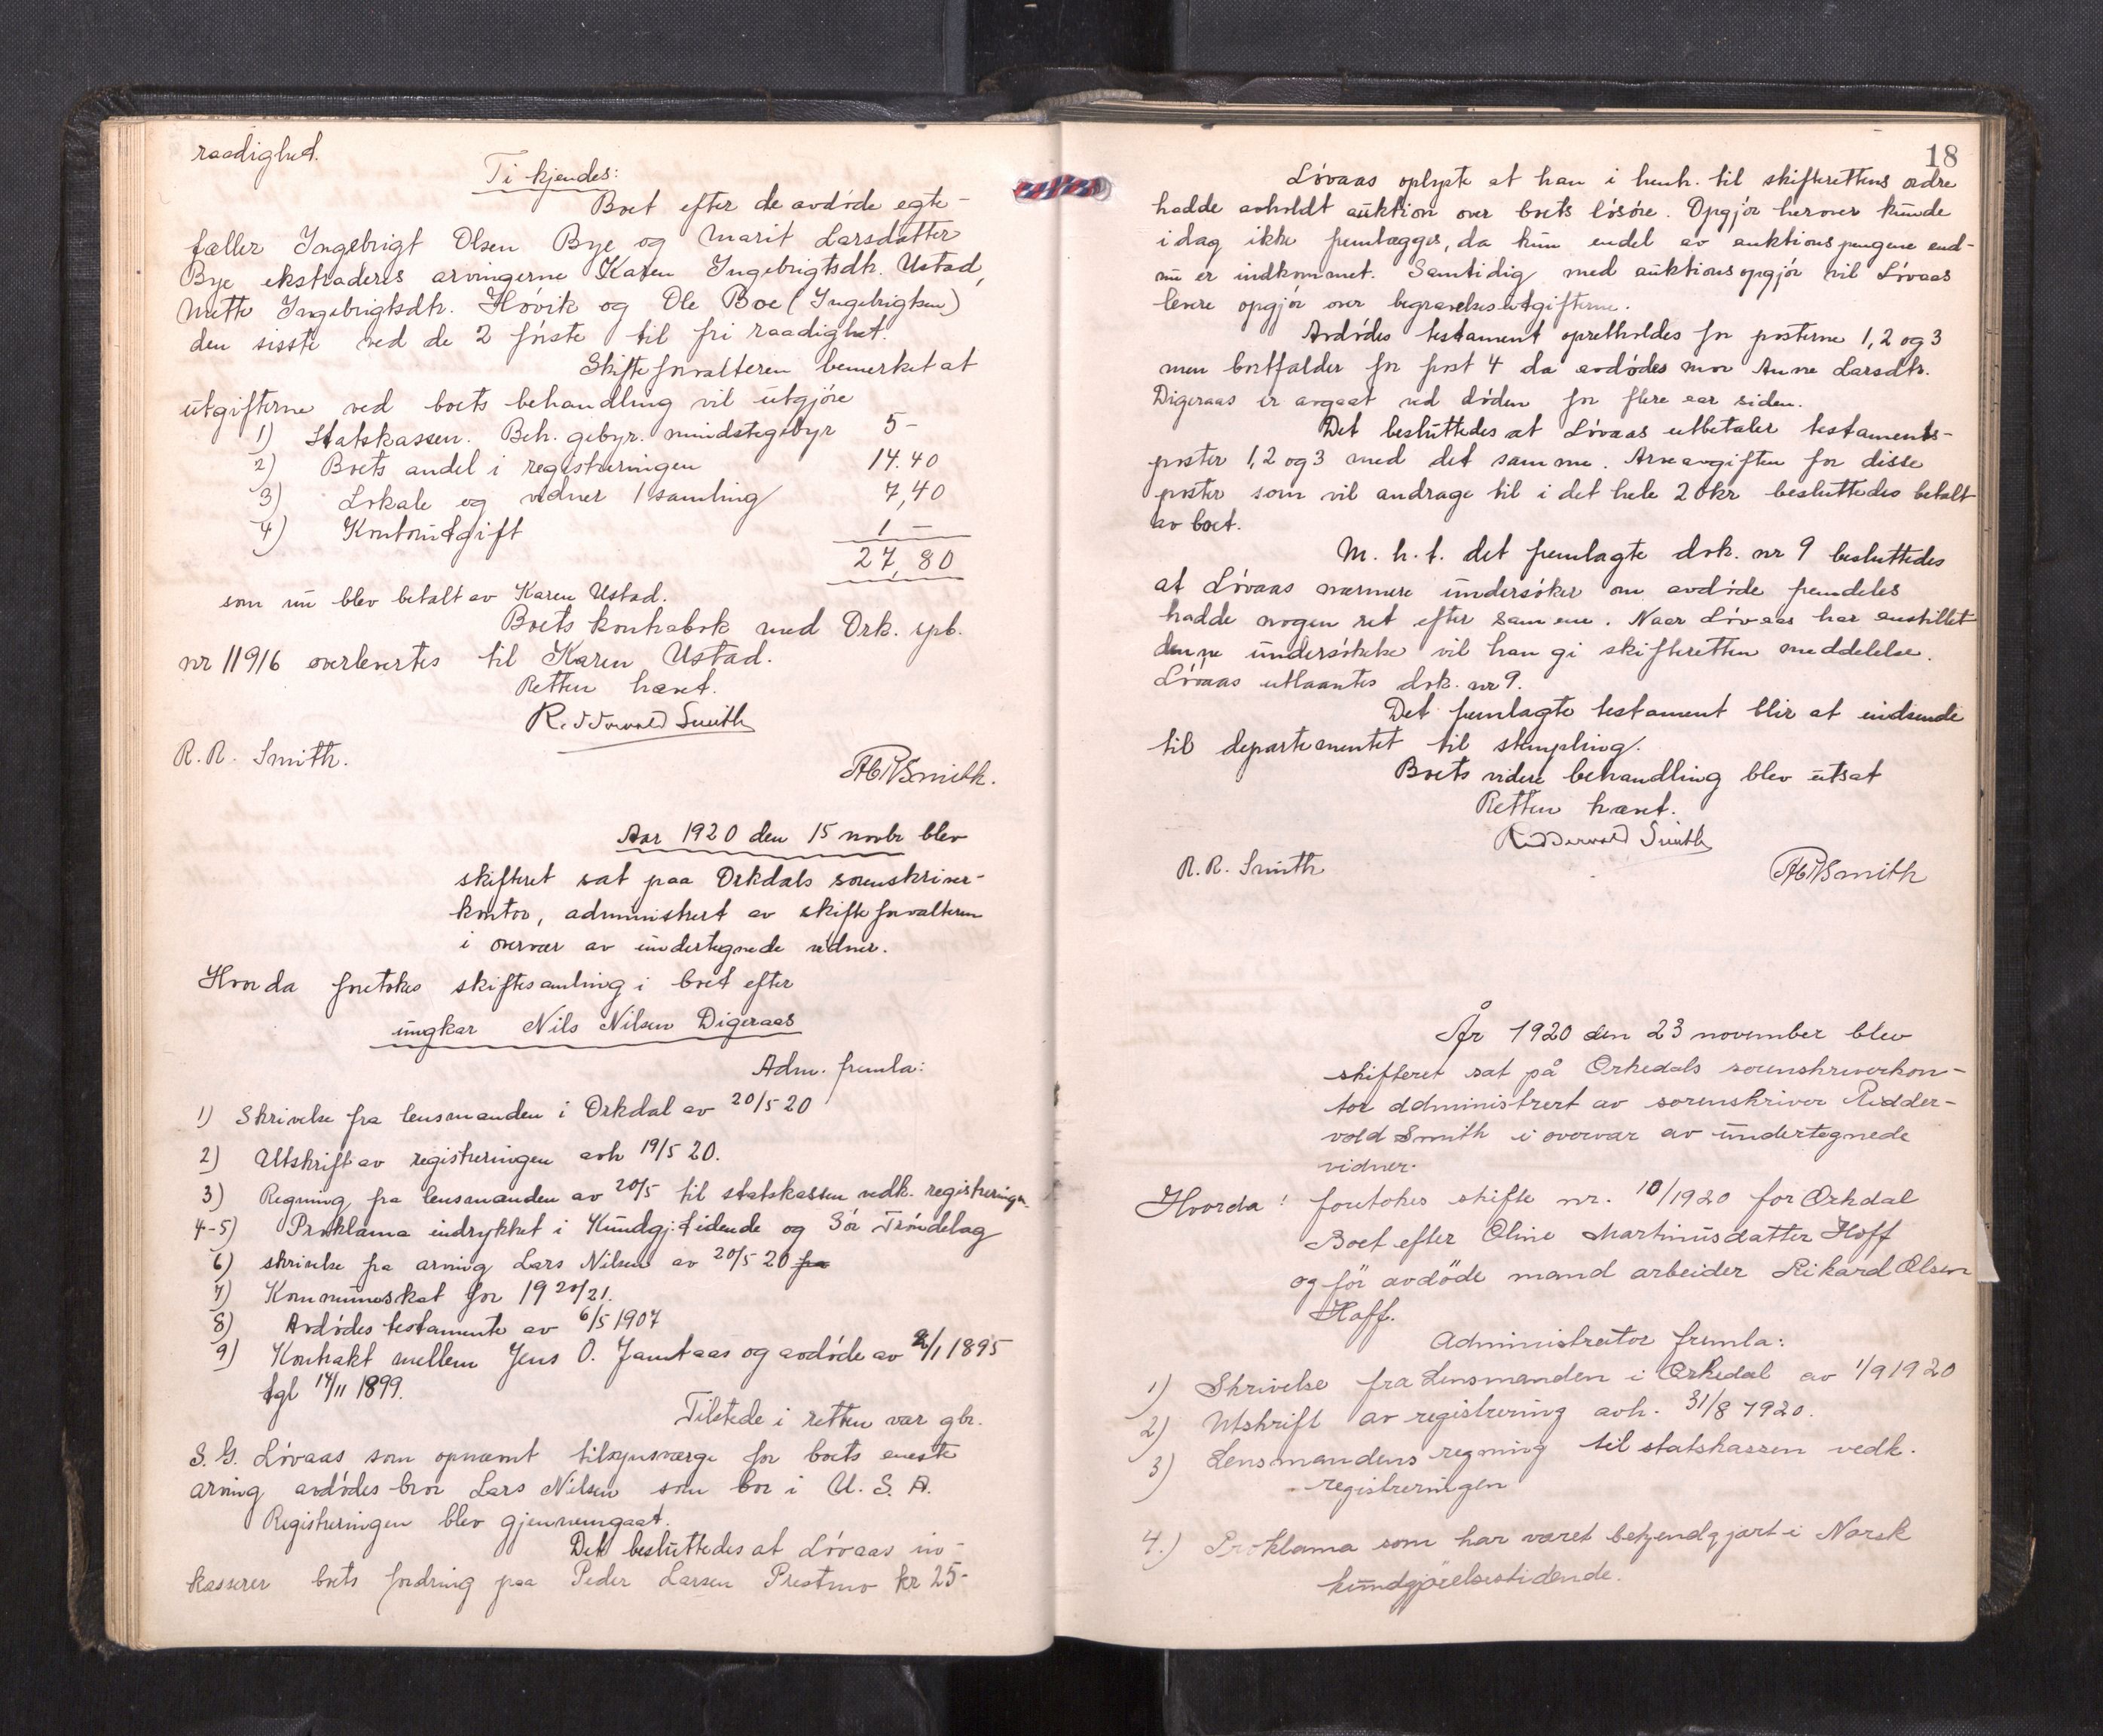 raadighed.
Ti kjendes:
Boet efter de avdøde egte-
fæller Ingebrigt Olsen Bye og Marit Larsdatter
Bye ekstraderes arvingerne Karen Ingebrigtsdtr. Ustad,
Mette Ingebrigtsdtr. Høvik og Ole Boe (Ingebrigtsen)
den sisste ved de 2 første til fri raadighet.
Skifteforvalteren bemerket at
utgifterne ved boets behandling vil utgjøre
1) Statskassen. Beh. gebyr. mindstegebyr 5-
2) Boets andel i registreringen 14.40
3) Lokale og vidner 1 samling 7,40
4) Kontoutgift 1 —
27,80
som nu blev betalt av Karen Ustad.
Boets kontrabok med Ork. spb.
nr 11916 overlevertes til Karen Ustad.
Retten hævet.
Riddervold Smith
R. R. Smith.
Smith.
Aar 1920 den 15 novbr blev
skifteret sat paa Orkdals sorenskriver-
kontor, administrert av skifteforvalteren
i overvær av undertegnede vidner.
Hvorda foretokes skiftesamling i boet efter
ungkar Nils Nilsen Digeraas
Adm. fremla:
1) Skrivelse fra lensmanden i Orkdal av 20/5 20
2) Utskrift av registreringen avh 19/5 20.
3) Regning fra lensmanden av 20/5 til statskassen vedk. registreringen
4-5) Proklama indrykket i Kundgj. tidende og Sør Trøndelag
6) skrivelse fra arving Lars Nilsen av 20/5 20 fra
7) Kommuneskat for 1920/21.
8) Avdødes testamente av 6/5 1907
9) Kontrakt mellem Jens O. Jamtaas og avdøde av 2/1 1895
tgl 14/11 1899.
Tilstede i retten var gbr.
S. G. Løvaas som opnævnt tilsynsværge for boets eneste
arving avdødes bror Lars Nilsen som bor i U. S. A.
Registreringen blev gjennemgaat.
Det besluttedes at Løvaas in-
kasserer boets fordring paa Peder Larsen Prestmo kr 25-
18
Løvaas oplyste at han i henh. til skifterettens ordre
hadde avholdt auktion over boets løsøre. Opgjør herover kunde
idag ikke fremlægges, da kun endel av auktionspengene end-
nu er indkommet. Samtidig med auktionsopgjør vil Løvaas
levere opgjør over begravelsesutgifterne.
Avdødes testament opretholdes for posterne 1, 2 og 3
men bortfalder for post 4 da avdødes mor Anne Larsdtr.
Digeraas er avgaat ved døden for flere aar siden.
Det besluttedes at Løvaas utbetaler testaments-
poster 1, 2 og 3 med det samme. Arveavgiften for disse
poster som vil andrage til i det hele 20kr besluttedes betalt
av boet.
M. h. t. det fremlagte dok. nr 9 besluttedes
at Løvaas nærmere undersøker om avdøde fremdeles
hadde nogen ret efter samme. Naar Løvaas har anstillet
denne undersøkelse vil han gi skifteretten meddelelse.
Løvaas utlaantes dok. nr 9.
Det fremlagte testament blir at indsende
til departementet til stempling.
Boets videre behandling blev utsat
Retten hævet.
Riddervold Smith
R. R. Smith
Smith
År 1920 den 23 november blev
skifteret sat på Orkedals sorenskriverkon-
tor administrert av sorenskriver Ridder-
vold Smith i overvær av undertegnede
vidner.
Hvorda: foretokes skifte nr. 10/1920 for Orkdal
Boet efter Oline Martinusdatter Hoff
og før avdøde mand arbeider Rikard Olsen
Hoff.
Administrator fremla:
1) Skrivelse fra Lensmanden i Orkedal av 1/9 1920
2) Utskrift av registrering avh. 31/8 1920.
3) Lensmandens regning til statskassen vedk.
registreringen
4.) Proklama som har været bekjendtgjort i Norsk
kundgjørelsestidende.